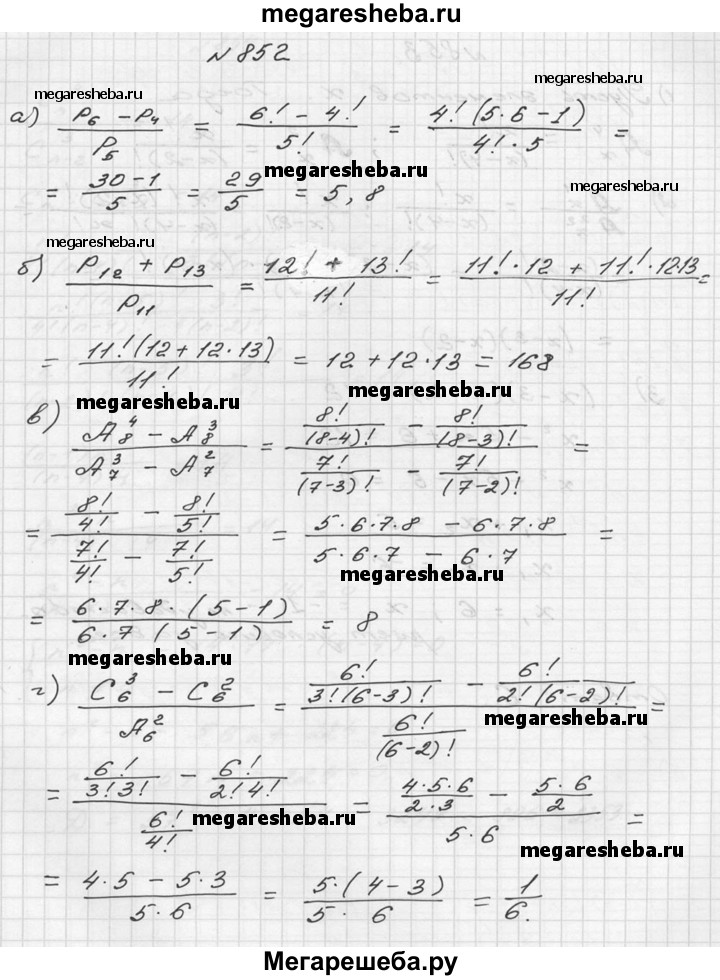 megaresheba.ru
№ 852
megaresheba.ru megaresheba.ru
а) (P₆ - P₄)/P₅ = (6! - 4!)/5! = (4!(5·6-1))/(4!·5) =
megaresheba.ru megaresheba.ru
= (30-1)/5 = 29/5 = 5,8
megaresheba.ru megaresheba.ru
б) (P₁₂ + P₁₃)/P₁₁ = (12! + 13!)/11! = (11!·12 + 11!·12·13)/11! =
= (11!(12+12·13))/11! = 12+12·13 = 168
megaresheba.ru megaresheba.ru
в) (A₈⁴ - A₈³)/(A₇³ - A₇²) = (8!/(8-4)! - 8!/(8-3)!)/(7!/(7-3)! - 7!/(7-2)!) =
= (8!/4! - 8!/5!)/(7!/4! - 7!/5!) = (5·6·7·8 - 6·7·8)/(5·6·7 - 6·7) =
megaresheba.ru
= (6·7·8·(5-1))/(6·7(5-1)) = 8
megaresheba.ru
г) (C₆³ - C₆²)/A₆² = (6!/(3!(6-3)!) - 6!/(2!(6-2)!))/(6!/(6-2)!) =
megaresheba.ru
= (6!/(3!3!) - 6!/(2!4!))/(6!/4!) = ((4·5·6)/(2·3) - (5·6)/2)/(5·6) =
megaresheba.ru
megaresheba.ru
= (4·5 - 5·3)/(5·6) = (5·(4-3))/(5·6) = 1/6.
Мегарешеба.ру